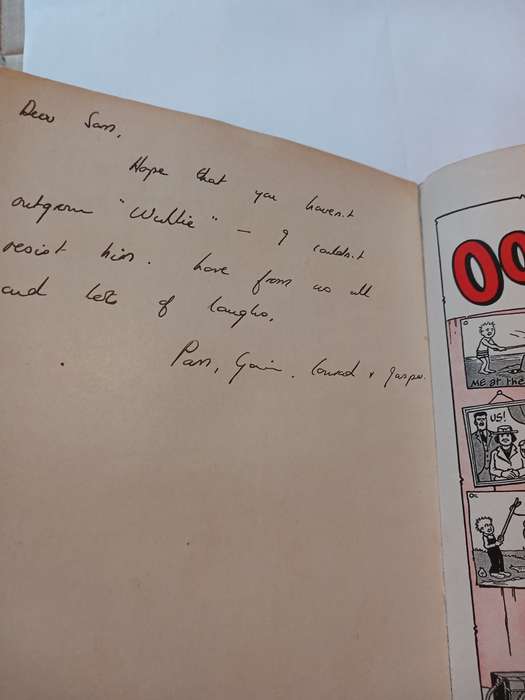 Dear Sam,
Hope that you haven't
outgrown "Wullie" – I couldn't
resist him. Love from us all
and lots of laughs,
Pam, Gavin, Conrad + Jasper.
OO
ME at the
US!